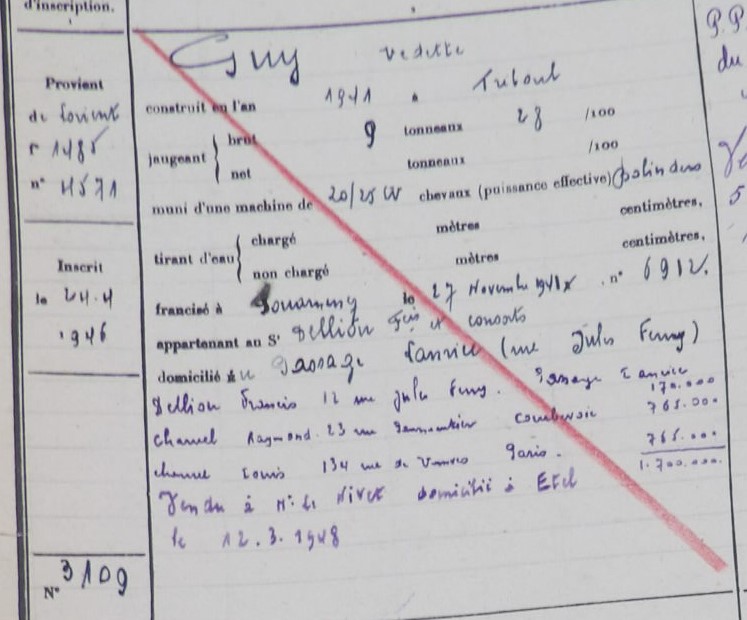 d'inscription.
Provient
de Lorient
n° 4571
Inscrit
le 24.4
1946
N° 3109
Guy vedette
construit en l'an 1941 à Tréboul
jaugeant brut 9 tonneaux 28 /100
net tonneaux /100
muni d'une machine de 20/25 CV chevaux (puissance effective)
tirant d'eau chargé mètres centimètres,
non chargé mètres centimètres,
francisé à Douarnenez le 27 Novembre n° 6912.
appartenant au Sr Dellion Fcis et consorts
domicilié au Passage Lanriec (rue Jules Ferry)
Dellion Francis 12 rue Jules Ferry. Passage Lanriec 170.000
Charuel Raymond. 23 rue Courbevoie 765.000
Louis 134 rue de Vanves Paris. 765.000
1.700.000.
Vendu à Mr Le Nivet domicilié à Etel
le 12.3.1948
P.P.
du
5